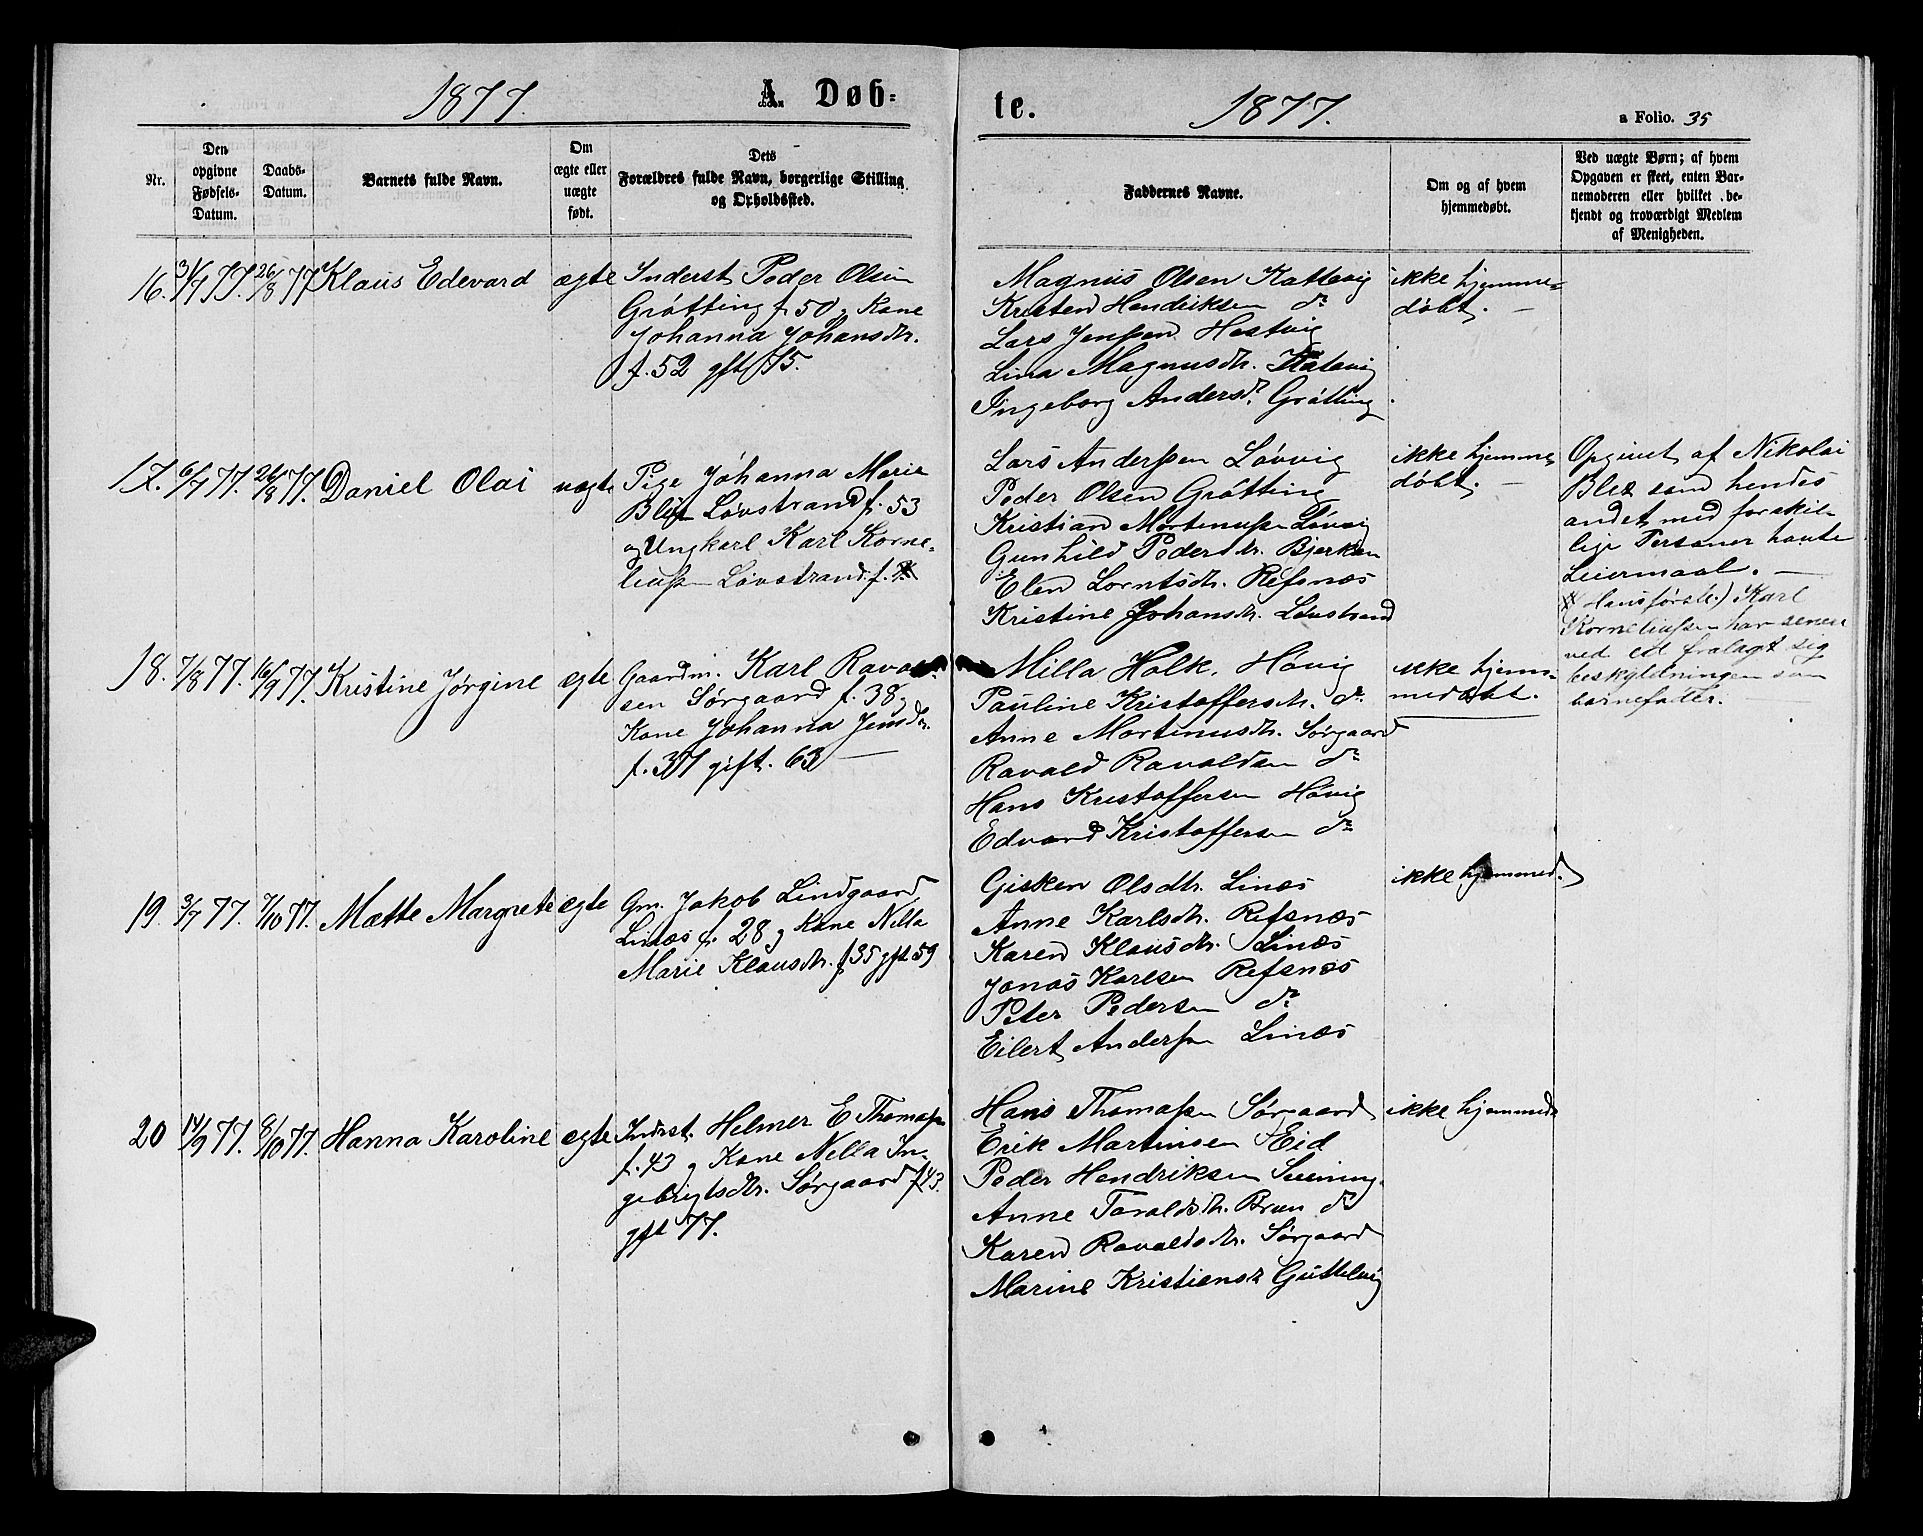 1877. A. Døb-
te. 1877. a Folio. 35
Nr.
Den opgivne Fødsels-Datum.
Daabs-Datum.
Barnets fulde Navn.
Om ægte eller uægte født.
Dets Forældres fulde Navn, borgerlige Stilling og Opholdssted.
Faddernes Navne.
Om og af hvem hjemmedøbt.
Ved uægte Børn; af hvem Opgaven er skeet, enten Barnemoderen eller hvilket bekjendt og troværdigt Medlem af Menigheden.
16. 31/7 77. 26/8 77 Klaus Edevard ægte
Inderst Peder Olsen
Gråtting f. 50 og Kone
Johanna Johansdtr.
f. 52 gft 75.
Magnus Olsen Kattevig
Kristen Hendriksen do
Lars Jenssen Hestvig
Lina Magnusdtr. Katevig
Ingeborg Andersdr. Gråtting
ikke hjemme-
døbt. —
17. 6/7 77. 26/8 77. Daniel Olai uægte
Pige Johanna Marie
Løvstrand f. 53
og Ungkarl Karl Korne-
liussen Løvstrand f.
Lars Anderssen Løvvig
Peder Olsen Gråtting
Kristian Martinussen Løvvig
Gunhild Pedersdtr. Bjerken
Elen Lorntsdtr. Refsnæs
Kristine Johansdtr. Løvstrand
ikke hjemme
døbt. —
Opgivet af Nikolai
Blez som hendes
andet med forskil-
lige Personer havte
Leiermaal. —
Hans første.) Karl
Korneliussen har senere
ved ed fralagt sig
beskyldningen som
barnefader.
18. 7/8 77. 16/9 77. Kristine Jørgine ægte
Gaardm. Karl Raval-
sen Sørgaard f. 38 og
Kone Johanna Jensdtr.
f. 37 gift. 63 —
Milla Holk, Håvig
Pauline Kristoffersdtr. do
Anne Martinusdtr. Sørgaard
Ravald Ravaldsen do
Hans Kristoffersen Håvig
Edvard Kristoffersen do
ikke hjem-
medøbt.
19. 3/7 77. 7/10 77. Mætte Margrete ægte
Gm. Jakob Lindgaard
Linæs f. 28 og Kone Nella
Marie Klausdtr. f 35 gft 59
Gisken Olsdtr. Linæs
Anne Karlsdtr. Refsnæs
Karen Klausdtr. Linæs
Jonas Karlsen Refsnæs
Peter Pedersen do
Eilert Anderssen Linæs
ikke hjemmed.
20 14/9 77. 8/10 77. Hanna Karoline ægte
Inderst. Helmer E Thomassen
f. 43 og Kone Nella In-
gebrigtsdtr. Sørgaard f 43.
gft 77.
Hans Thomassen Sørgaard
Erik Martinsen Eid
Peder Hendriksen
Anne Taraldsdtr. Brun do
Karen Ravaldsdtr. Sørgaard
Marine Kristiansdr Guttelvig
ikke hjemmed.